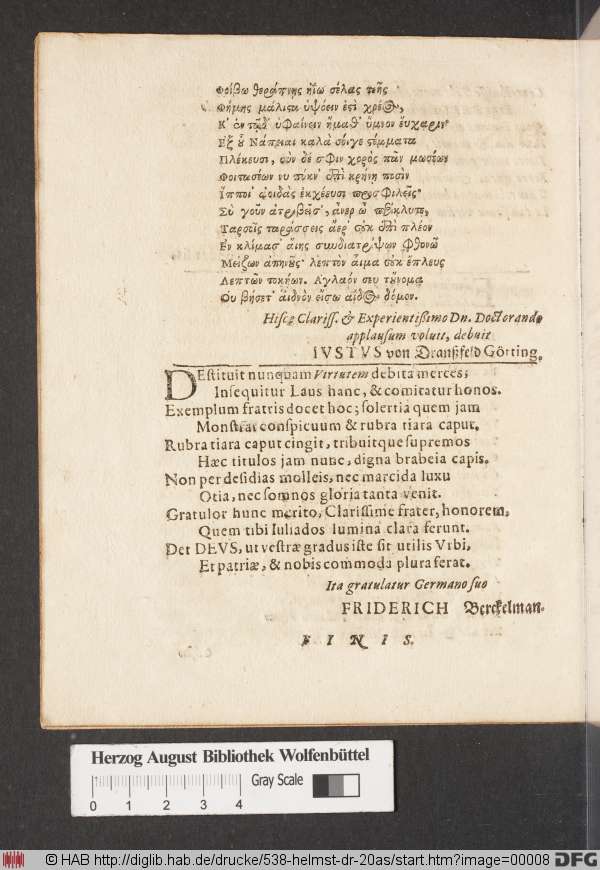 Φοίβω θεράπνης ἠΐω σέλας τεῆς
Φήμης μάλιςα ὑψόειν ἐςὶ χρέΘ,
Κ' ὑφαίνειν ὕμνον ἔυχαριν
Εξ καλὰ ςέμματα
Πλέκευσι, σὺν δέ σφιν χορὸς πᾶν μωσέων
κρήνῃ πεσὶν
Ἵπποι ἀοιδὰς ἐκχέευσι προσφιλεῖς
Σὺ γοῦν ἀνερ ὦ πείκλυτε,
Ταρσεῖς ταράσσεις ἄερ' πλέον
Εν κλίμασ' φθονῶ
Μείζων λεπτὸν ἔπλευς
Λεπτῶν τοκήων. Αγλαόν σευ τὔνομα
Ου βήσετ' ἀϊδνὸν εἴσω δόμον.
Hisce Clariss. & Experientißimo Dn. Doctorando
applausum voluit, debuit
IVSTVS von Dranßfeld Götting.
DEstituit nunquam Virtutem debita merces;
Insequitur Laus hanc, & comitatur honos.
Exemplum fratris docet hoc; solertia quem jam
Monstrat conspicuum & rubra tiara caput.
Rubra tiara caput cingit, tribuitque supremos
Hæc titulos jam nunc, digna brabeia capis.
Non per desidias molleis, nec marcida luxu
Otia, nec somnos gloria tanta venit.
Gratulor hunc merito, Clarissime frater, honorem,
Quem tibi Iuliados lumina clara ferunt.
Det DEVS, ut vestræ gradus iste sit utilis Vrbi,
Et patriæ, & nobis commoda plura ferat.
Ita gratulatur Germano suo
FRIDERICH Berckelman.
FINIS.
Herzog August Bibliothek Wolfenbüttel
Gray Scale
0 1 2 3 4
© HAB http://diglib.hab.de/drucke/538-helmst-dr-20as/start.htm?image=00008 DFG